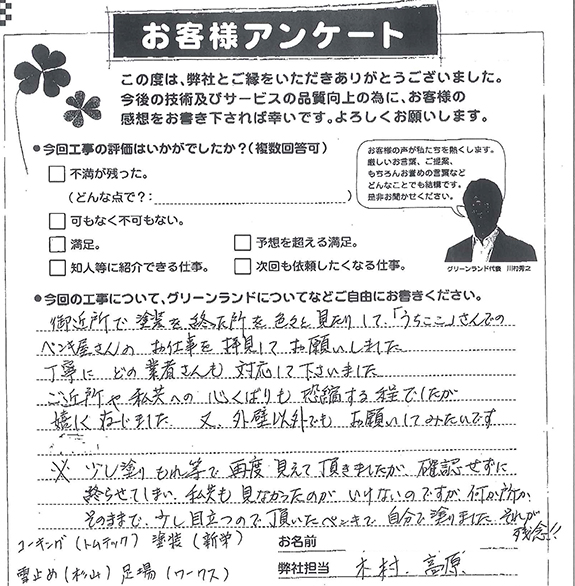 お客様アンケート
この度は、弊社とご縁をいただきありがとうございました。
今後の技術及びサービスの品質向上の為に、お客様の
感想をお書き下されば幸いです。よろしくお願いします。
●今回工事の評価はいかがでしたか?(複数回答可)
不満が残った。
(どんな点で?: )
可もなく不可もない。
満足。
予想を超える満足。
知人等に紹介できる仕事。
次回も依頼したくなる仕事。
お客様の声が私たちを熱くします。
厳しいお言葉、ご提案、
もちろんお誉めの言葉など
どんなことでも結構です。
是非お聞かせください。
グリーンランド代表 川村秀之
●今回の工事について、グリーンランドについてなどご自由にお書きください。
御近所で塗装を終った所を色々と見たりして、「うちここ」さんでの
ペンキ屋さんのお仕事を拝見してお願いしました
丁寧にどの業者さんも対応して下さいました
ご近所や私共への心くばりも恐縮する程でしたが
嬉しく存じました 又、外壁以外でもお願いしてみたいです
※ 少し塗りもれ等で再度見えて頂きましたが 確認せずに
終らせてしまい、私共も見なかったのがいけないのですが、何か所か
そのままで、少し目立つので、頂いたペンキで自分で塗りました。それが
残念!!
コーキング(トムテック) 塗装(新栄)
お名前
雪止め(杉山) 足場(ワークス)
弊社担当 木村、高原